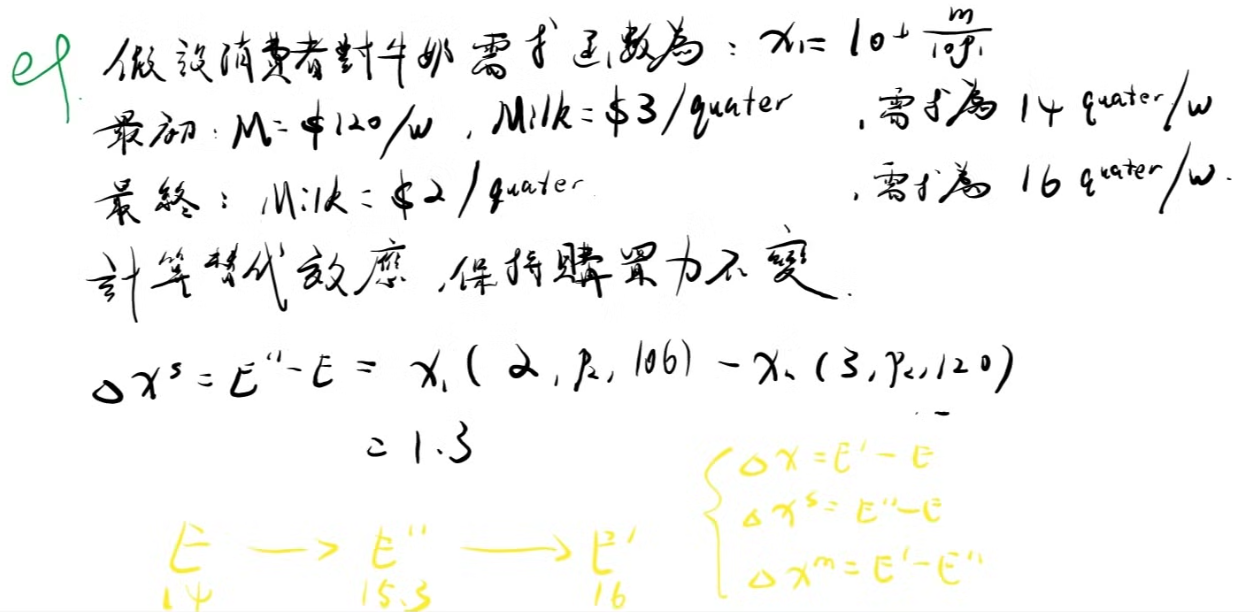 eg. 假設消費者對牛奶需求函數為：x₁= 10+ m/10p₁
最初：M=$120/w , Milk=$3/quater , 需求為 14 quater/w
最終：Milk=$2/quater , 需求為 16 quater/w.
計算替代效應,保持購買力不變.
△x^s = E''-E = x₁(2, p₂, 106) - x₁(3, p₂, 120)
= 1.3
△x = E'-E
△x^s = E''-E
△x^m = E'-E''
E → E'' → E'
14 15.3 16